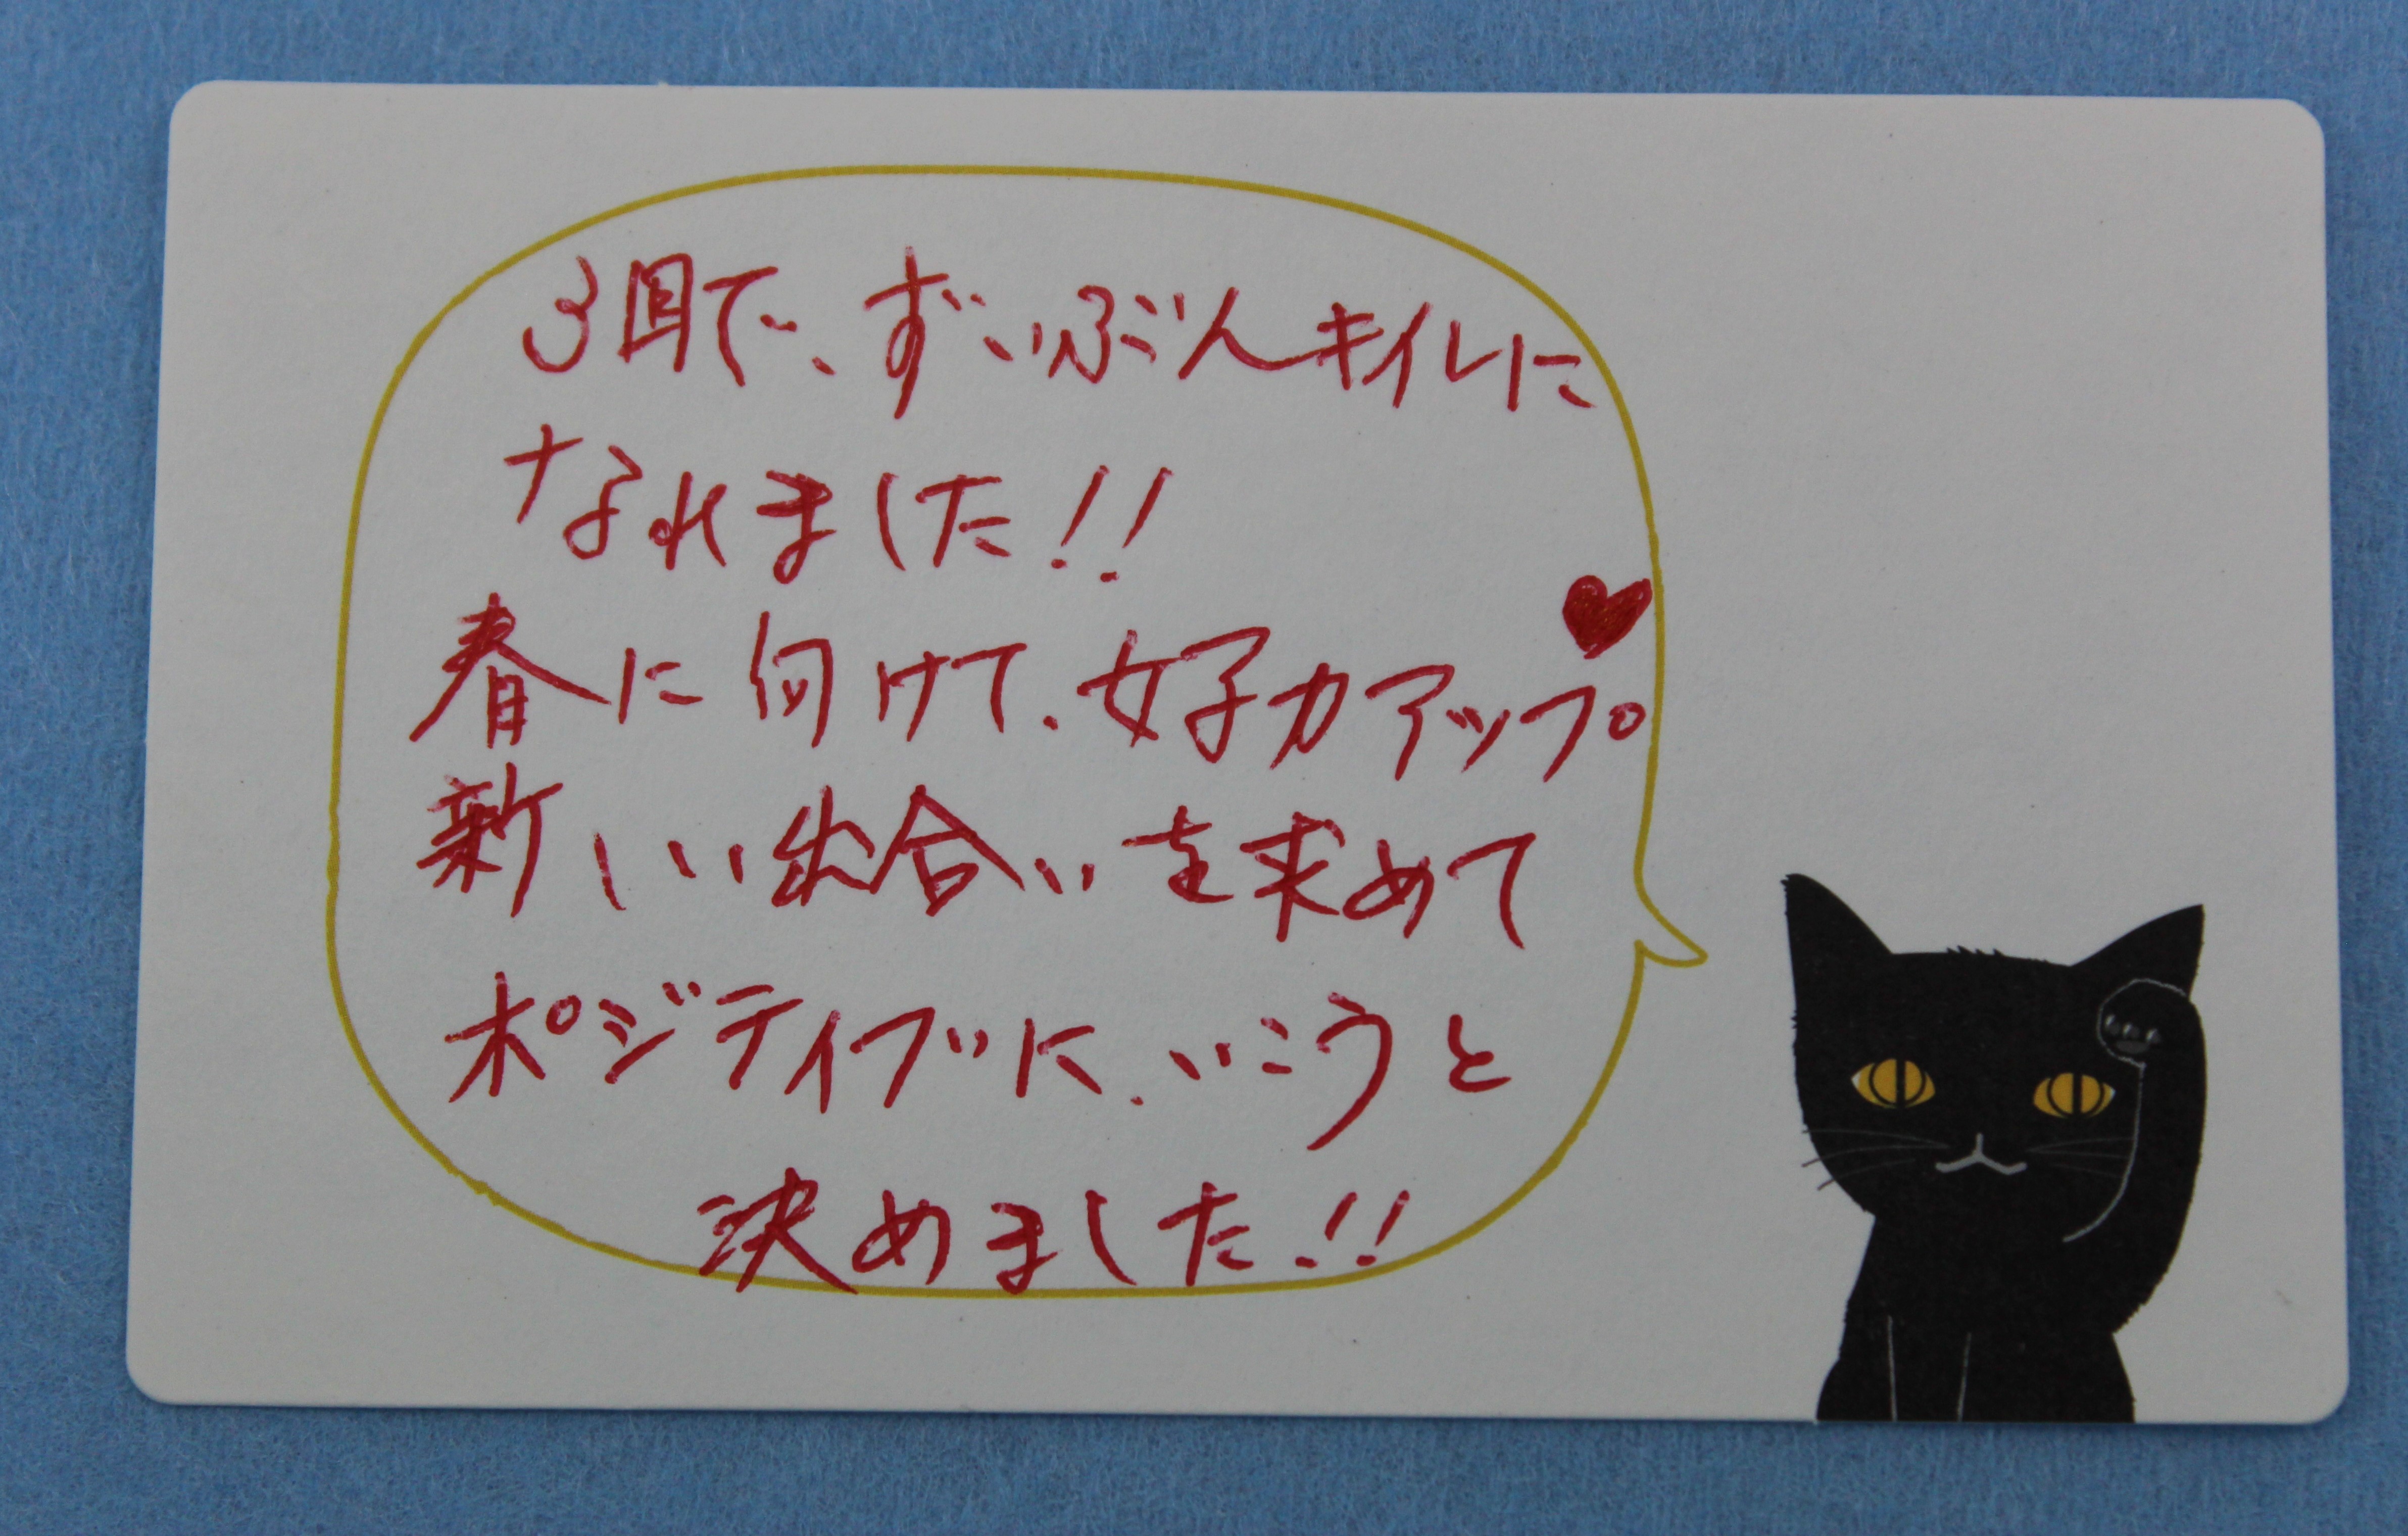 3回で、ずいぶんキイレに
なれました!!
春に向けて、女子力アップ♥
新しい出合いを求めて
ポジティブに、いこうと
決めました!!